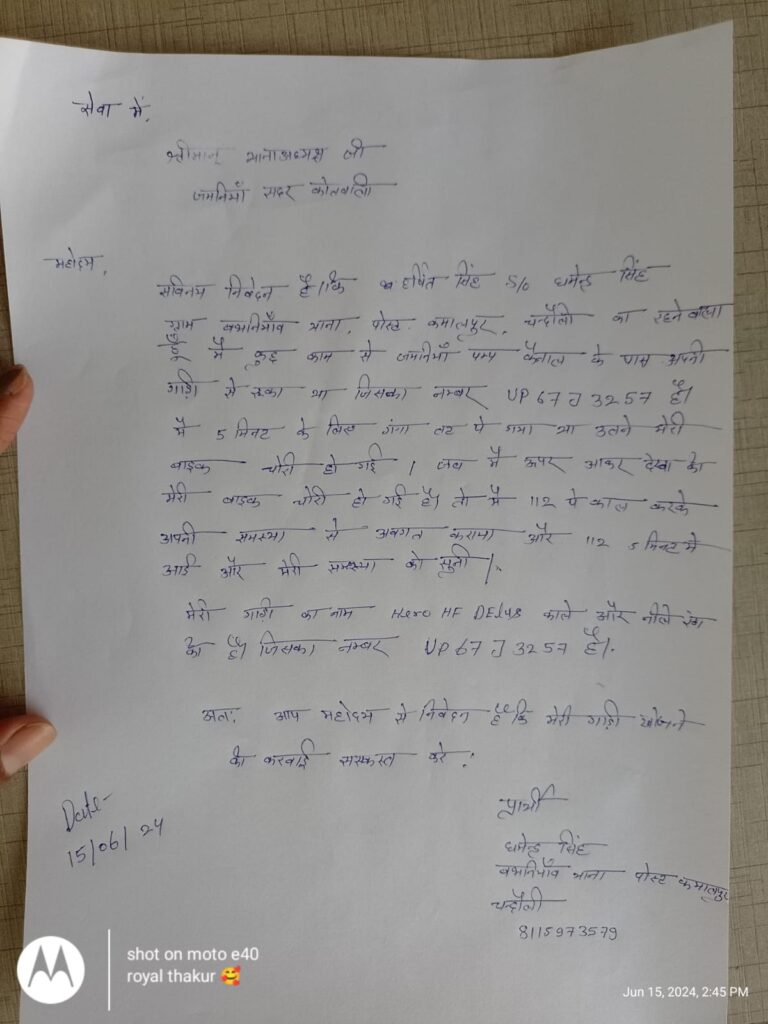 सेवा में,
श्रीमान् थानाअध्यक्ष जी
जमनियाँ सदर कोतवाली
महोदय,
सविनय निवेदन है। कि हर्षित सिंह S/o धर्मेन्द्र सिंह
ग्राम बभनियाँव थाना, पोस्ट कमालपुर, चन्दौली का रहने वाला
हूँ मैं कुछ काम से जमनियाँ पम्प कैनाल के पास अपनी
गाड़ी से रूका था जिसका नम्बर UP 67 J 3257 है।
मैं 5 मिनट के लिए गंगा तट पे गया था उतने मेरी
बाइक चोरी हो गई। जब मैं ऊपर आकर देखा की
मेरी बाइक चोरी हो गई है। तो मैं 112 पे काल करके
अपनी समस्या से अवगत कराया और 112 5 मिनट में
आई और मेरी समस्या को सुनी।
मेरी गाड़ी का नाम Hero HF काले और नीले रंग
की है। जिसका नम्बर UP 67 J 3257 है।
अतः आप महोदय से निवेदन है कि मेरी गाड़ी खोजने
की करवाई करे।
Date-
15/06/24
प्रार्थी
धर्मेन्द्र सिंह
बभनियाँव थाना पोस्ट कमालपुर
चन्दौली
8115973579
shot on moto e40
royal thakur 🥰
Jun 15, 2024, 2:45 PM